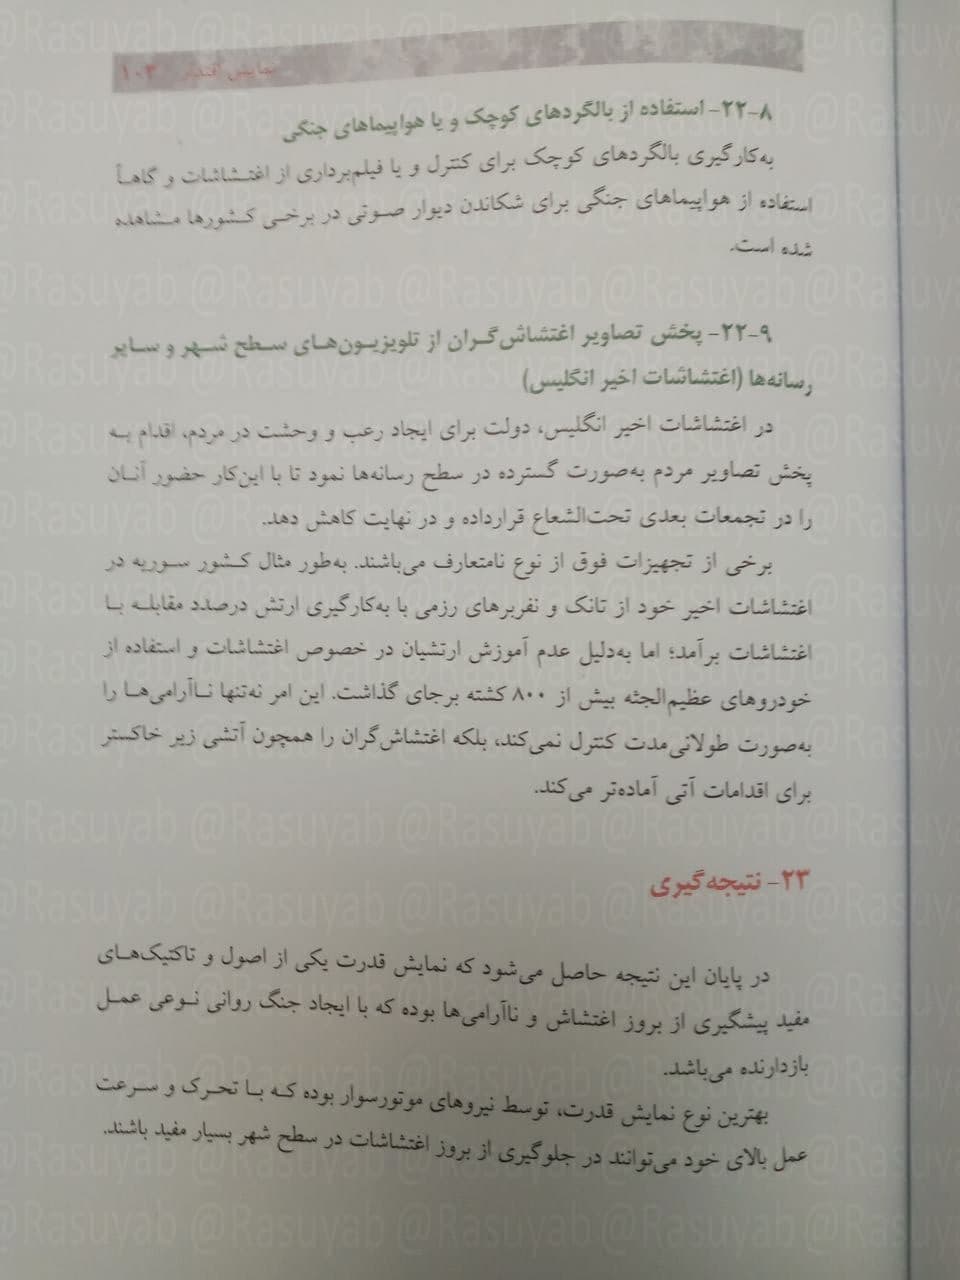 نمایش اقتدار ۱۰۳
۲۲-۸- استفاده از بالگردهای کوچک و یا هواپیماهای جنگی
به‌کارگیری بالگردهای کوچک برای کنترل و یا فیلم‌برداری از اغتشاشات و گاهاً
استفاده از هواپیماهای جنگی برای شکاندن دیوار صوتی در برخی کشورها مشاهده
شده است.
۲۲-۹- پخش تصاویر اغتشاش‌گران از تلویزیون‌های سطح شهر و سایر
رسانه‌ها (اغتشاشات اخیر انگلیس)
در اغتشاشات اخیر انگلیس، دولت برای ایجاد رعب و وحشت در مردم، اقدام به
پخش تصاویر مردم به‌صورت گسترده در سطح رسانه‌ها نمود تا با این‌کار حضور آنان
را در تجمعات بعدی تحت‌الشعاع قرارداده و در نهایت کاهش دهد.
برخی از تجهیزات فوق از نوع نامتعارف می‌باشند. به‌طور مثال کشور سوریه در
اغتشاشات اخیر خود از تانک و نفربرهای رزمی با به‌کارگیری ارتش درصدد مقابله با
اغتشاشات برآمد؛ اما به‌دلیل عدم آموزش ارتشیان در خصوص اغتشاشات و استفاده از
خودروهای عظیم‌الجثه بیش از ۸۰۰ کشته برجای گذاشت. این امر نه‌تنها ناآرامی‌ها را
به‌صورت طولانی‌مدت کنترل نمی‌کند، بلکه اغتشاش‌گران را همچون آتشی زیر خاکستر
برای اقدامات آتی آماده‌تر می‌کند.
۲۳- نتیجه‌گیری
در پایان این نتیجه حاصل می‌شود که نمایش قدرت یکی از اصول و تاکتیک‌های
مفید پیشگیری از بروز اغتشاش و ناآرامی‌ها بوده که با ایجاد جنگ روانی نوعی عمل
بازدارنده می‌باشد.
بهترین نوع نمایش قدرت، توسط نیروهای موتورسوار بوده که با تحرک و سرعت
عمل بالای خود می‌توانند در جلوگیری از بروز اغتشاشات در سطح شهر بسیار مفید باشند.
@Rasuyab